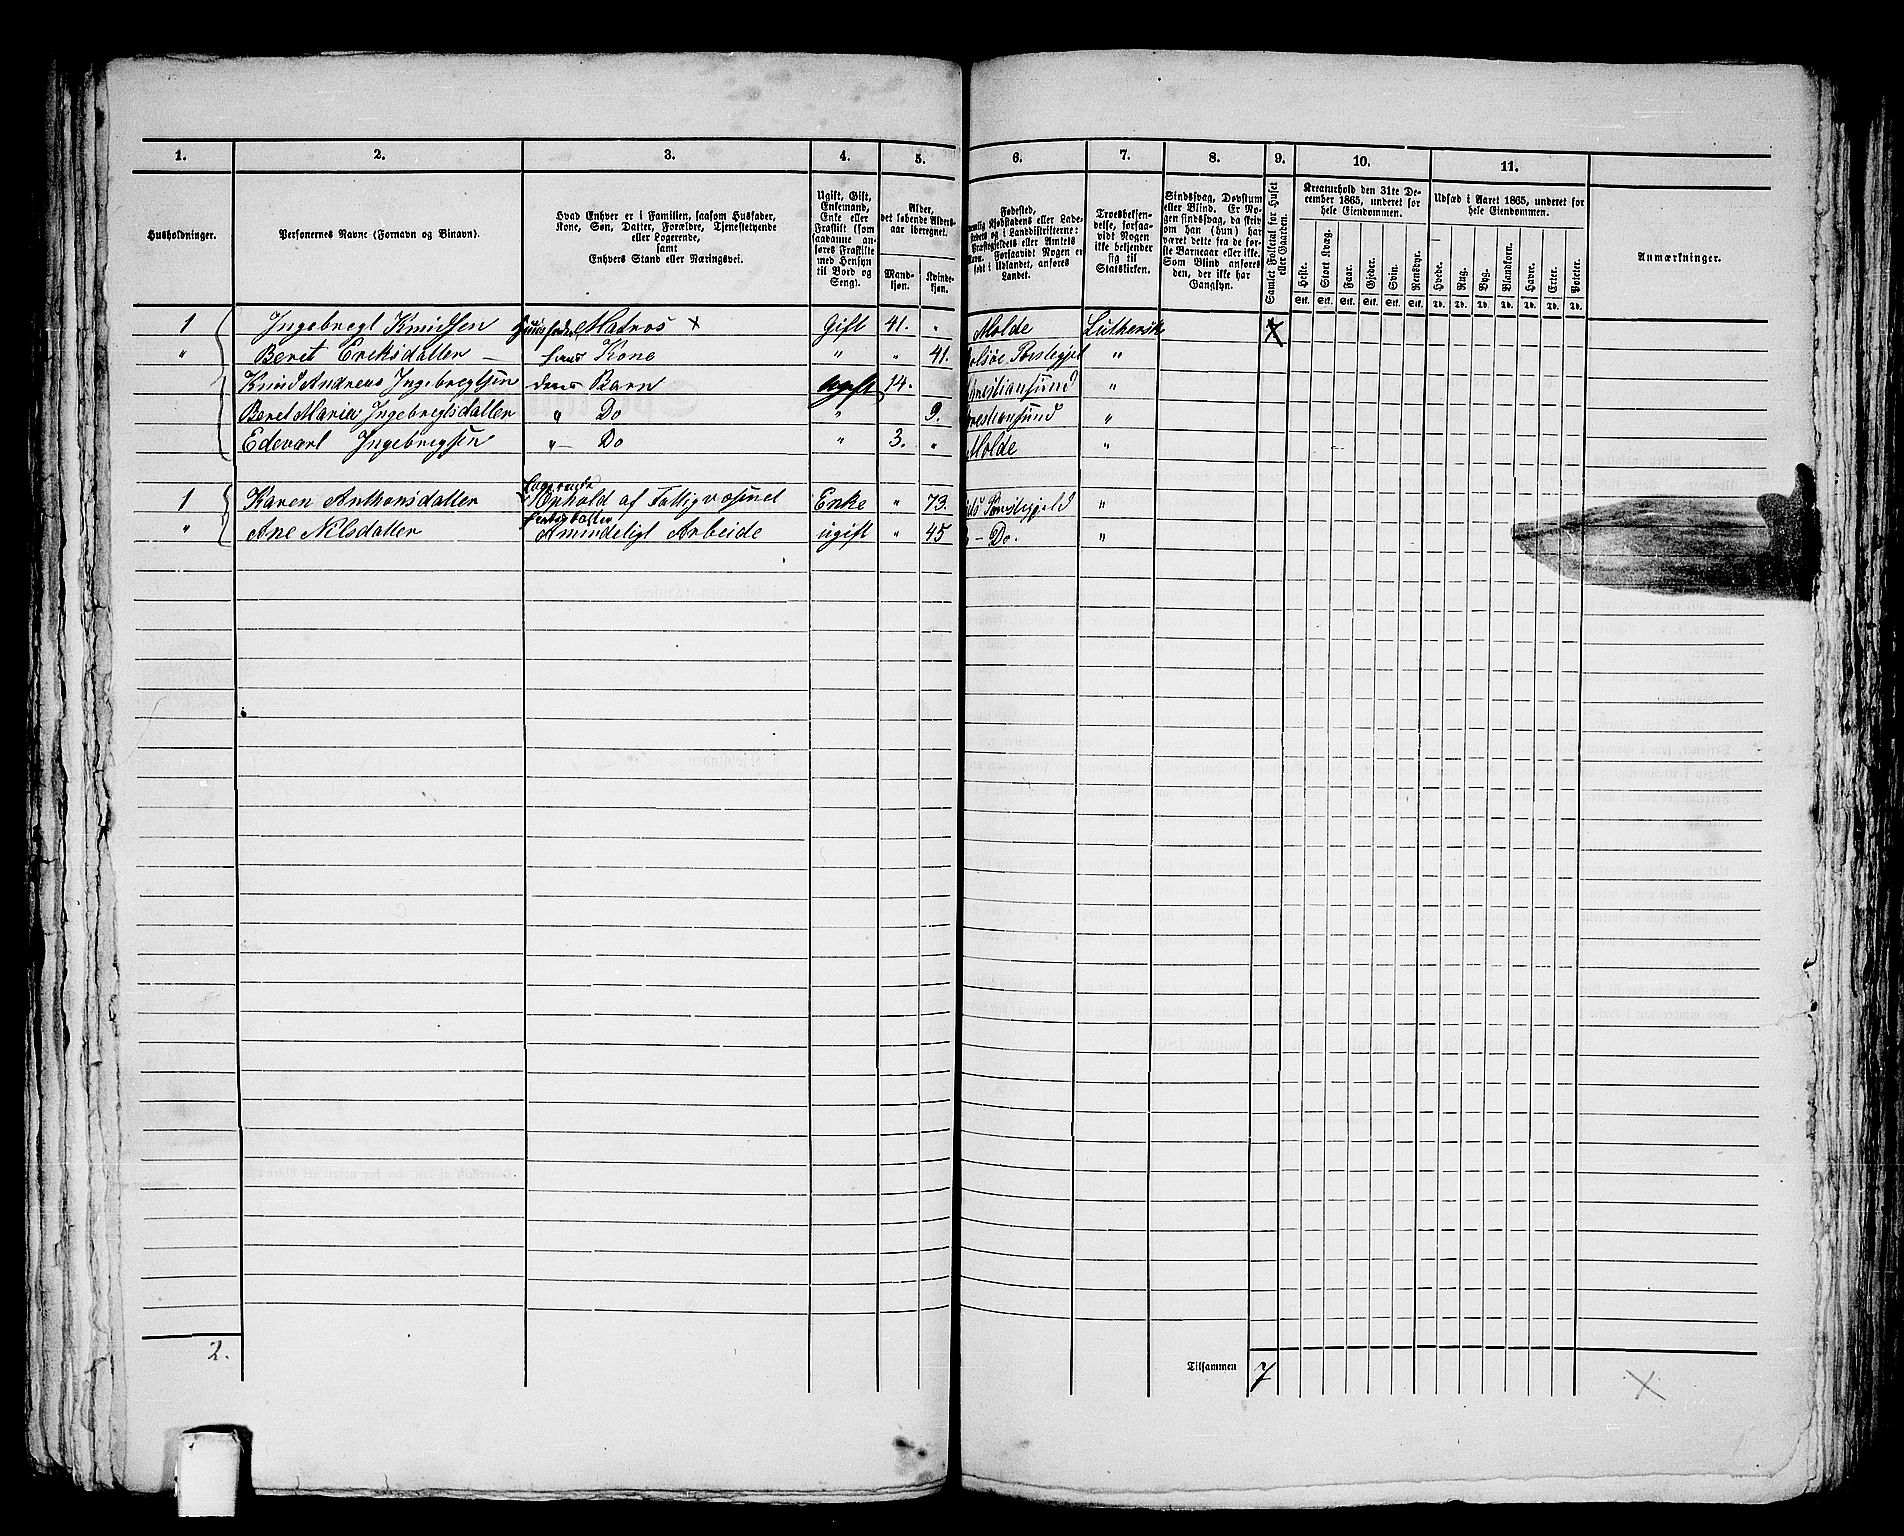 1. 2. 3. 4. 5. 6. 7. 8. 9. 10. 11.
Husholdninger.
Personernes Navne (Fornavn og Binavn).
Hvad Enhver er i Familien, saasom Husfader,
Kone, Søn, Datter, Forældre, Tjenestetyende
eller Logerende,
samt
Enhvers Stand eller Næringsvei.
Ugift, Gift,
Enkemand,
Enke eller
Fraskilt (som
saadanne an-
føres Fraskilte
med Hensyn
til Bord og
Seng).
Alder,
det løbende Alders-
aar iberegnet.
Mand-
kjøn.
Kvinde-
kjøn.
Fødested,
Kjøbstadens eller Lade-
stedets og i Landdistrikterne:
Præstegjeldets eller Amtets
Navn. Forsaavidt Nogen er
født i Udlandet, anføres
Landet.
Troesbekjen-
delse, forsaa-
vidt Nogen
ikke bekjender
sig til
Statskirken.
Sindssvag, Døvstum
eller Blind. Er No-
gen sindssvag, da skriv
om han (hun) har
været dette fra de før-
ste Barneaar eller ikke.
Som Blind anføres
den, der ikke har
Gangsyn.
Samlet Folketal for Huset
eller Gaarden.
Kreaturhold den 31te De-
cember 1865, underet for
hele Eiendommen.
Heste. Stort Kvæg. Faar. Gjeder. Svin. Rensdyr.
Stk. Stk. Stk. Stk. Stk. Stk.
Udsæd i Aaret 1865, underet for
hele Eiendommen.
Hvede. Rug. Byg. Blandkorn. Havre. Erter. Poteter.
Td. Td. Td. Td. Td. Td. Td.
Anmærkninger.
1 Ingebregt Knudsen Huusfader, Matros x Gift 41. " Molde Luthersk 7
" Beret Eriksdatter — hans Kone " " 41. Bolsøe Præstegjel "
Knud Andreas Ingebregtsen deres Barn ugift 14. Christiansund "
Beret Maria Ingebregtsdatter " Do " 9. Christiansund "
Edevart Ingebregtsen " — Do " 3. " Molde "
1 Karen Anthonsdatter Logerende Ophold af Fattigvæsnet Enke " 73. Præstegjeld "
" Ane Nilsdatter Almindeligt Arbeide ugift " 45 " — Do. "
2.
Tilsammen 7
X